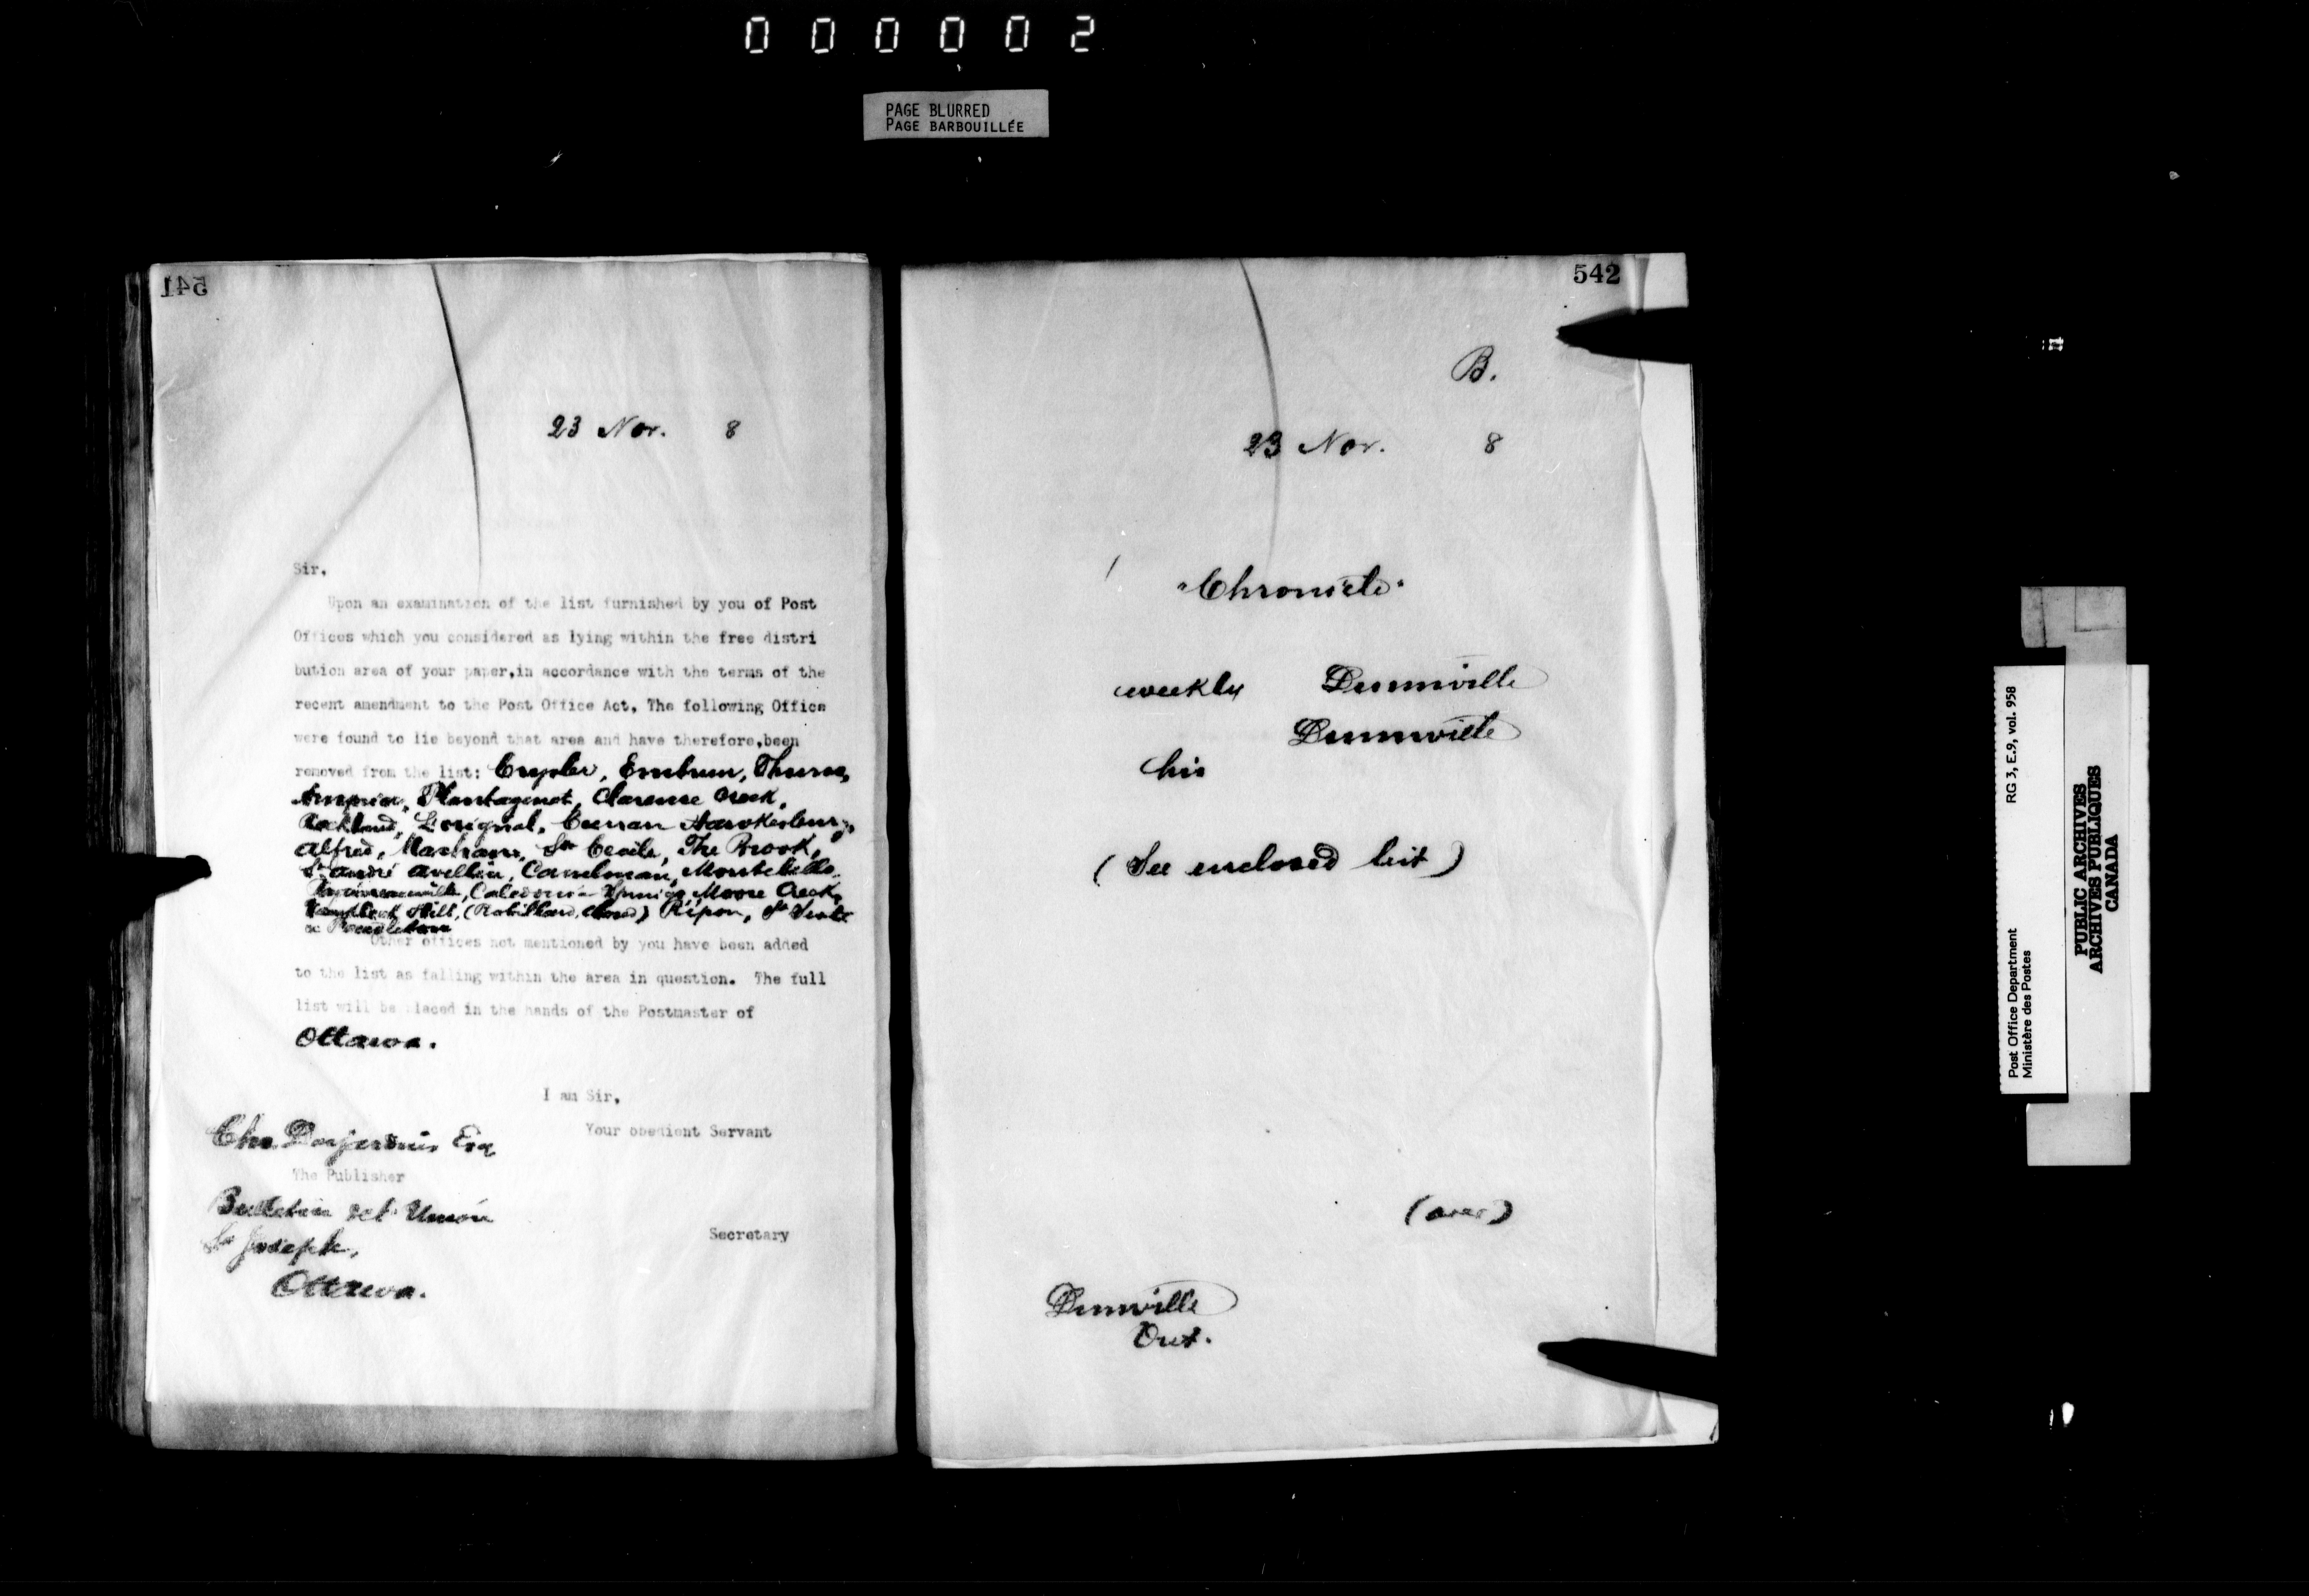 000002
PAGE BLURRED
PAGE BARBOUILLÉE
541
23 Nov. 8
Sir,
Upon an examination of the list furnished by you of Post
Offices which you considered as lying within the free distri
bution area of your paper,in accordance with the terms of the
recent amendment to the Post Office Act, The following Office
were found to lie beyond that area and have therefore,been
removed from the list: Crysler, Embrun, Thurso,
Arnprior, Plantagenet, Clarence Creek,
Rockland, L'Orignal, Curran Hawkesbury,
Alfred, Masham, Ste Cecile, The Brook,
St André Avellin, Casselman, Montebello,
Papineauville, Caledonia Springs, Moose Creek,
Hill, (Robillard, closed) Ripon,
Pendleton
Other offices not mentioned by you have been added
to the list as falling within the area in question. The full
list will be placed in the hands of the Postmaster of
Ottawa.
I am Sir,
Your obedient Servant
Chs. Desjardins Esq
The Publisher
Bulletin de l'Union
St Joseph,
Secretary
Ottawa.
542
B.
23 Nov. 8
"Chronicle"
weekly Dunnville
Dunnville
his
(See enclosed list)
(over)
Dunnville
Ont.
RG 3, E.9, vol. 958
Post Office Department
Ministère des Postes
PUBLIC ARCHIVES
ARCHIVES PUBLIQUES
CANADA